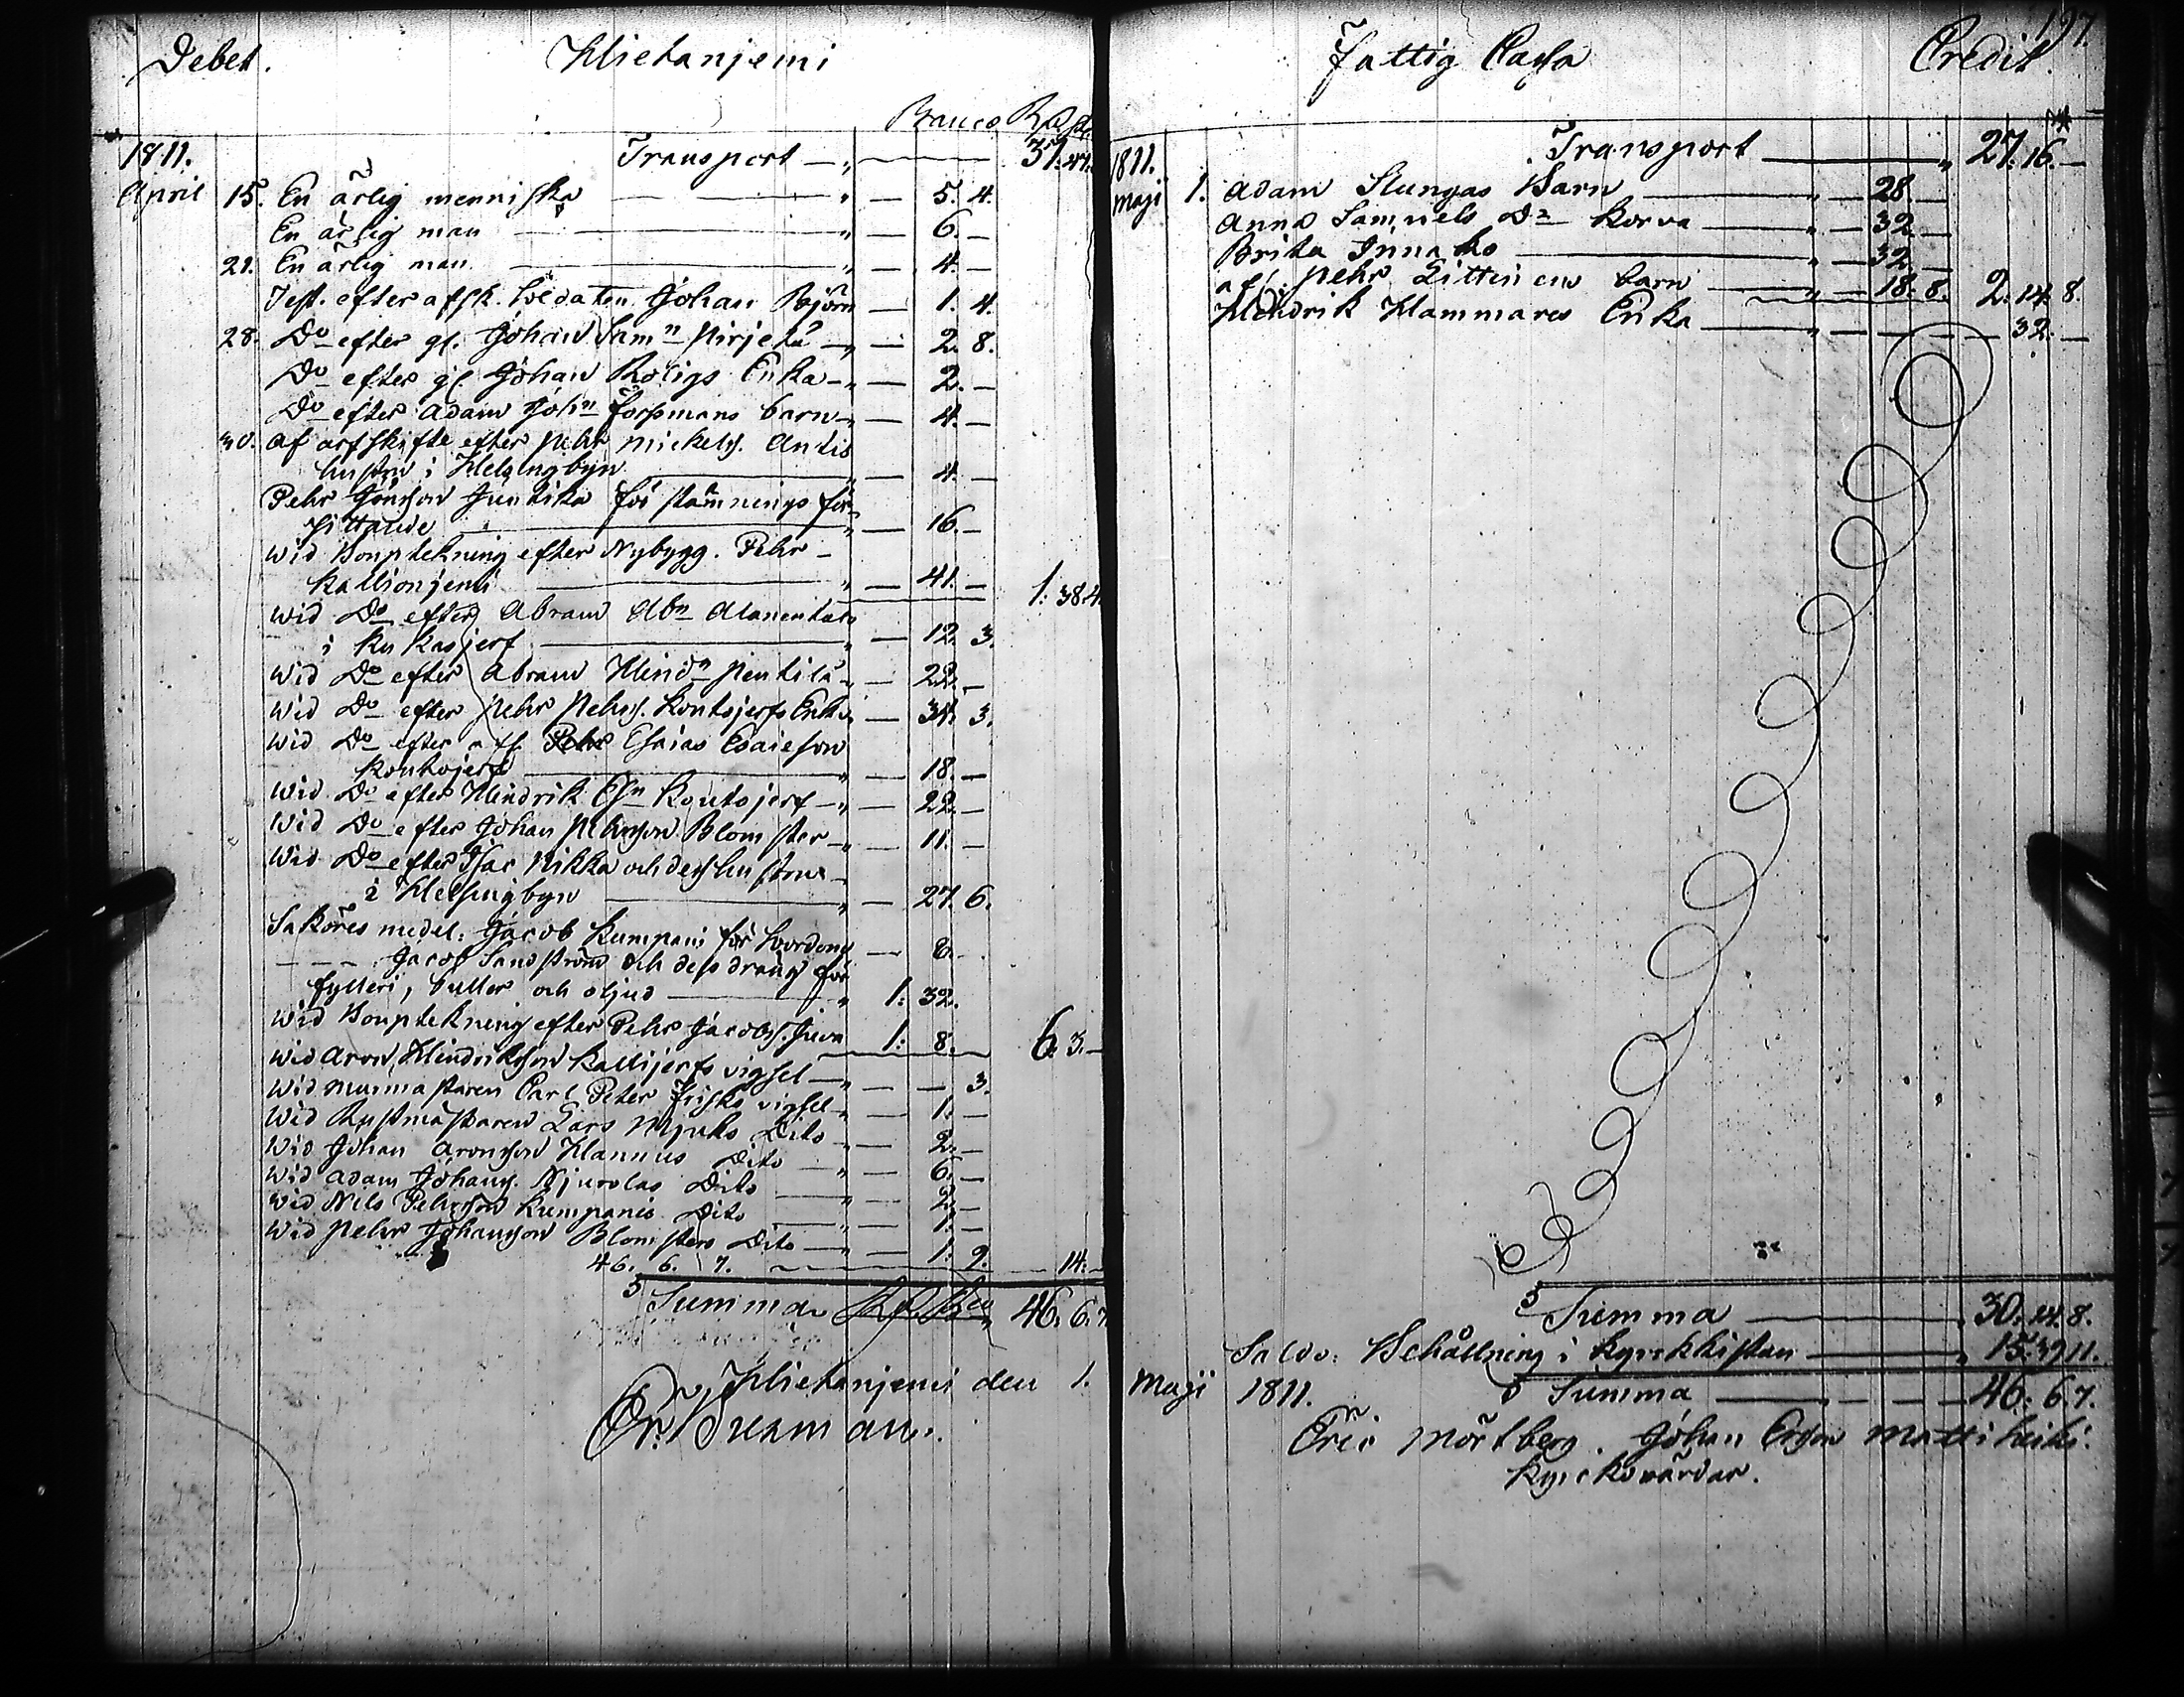 Debet. Hietanjemi
Banco Rd. sk.
1811. Transport — 37: 47.
April 15. En ärlig menniska — 5. 4.
En ärlig man — 6. —
21. En ärlig man — 4. —
Test. efter afsk. Soldaten Johan Björn — 1. 4.
28. Do efter gl. Johan Samn Pirjetä — 2. 8.
Do efter gl. Johan Roligs Enka — 2. —
Do efter Adam John Forssmans barn — 4. —
30. Af arfskifte efter Pehr Mickels. Antis
hustru i Helsingbyn — 4. —
Pehr Jönsson Juntika för stämnings för-
sittande — 16. —
Wid Bouptekning efter Nybygg. Pehr
Kallionjemi — 41. — 1: 38. 4.
Wid Do efter Abram Abn Alanentalo
i Kukasjerf — 12. 3.
Wid Do efter Abram Hindn Pentilä — 22. —
Wid Do efter Pehr Pehrs. Kontsjerfs Enka — 34. 3.
Wid Do efter afl. Esaias Esaieson
Kontojerf — 18. —
Wid Do efter Hindrik Esn Koutojerf — 22. —
Wid Do efter Johan Pehrsson Blomster — 11. —
Wid Do efter Isac Nikka och dess hustru
i Helsingbyn — 27. 6.
Saköres medel: Jacob Kumpani för — 6. —
— — — Jacob Sandström och dess dräng för
fylleri, buller och oljud — 1: 32.
Wid Bouptekning efter Pehr Jacobs. Juva 1: 8. 6. 3. —
Wid Aron Hindriksson Kallijerfs vigsel — — 3.
Wid Murmästaren Carl Peter Frisks vigsel — 1. —
Wid Rustmästaren Lars Dito — 2. —
Wid Johan Aronsson Hannus Dito — 6. —
Wid Adam Johans. Njurolas Dito — 2. —
Wid Nils Pehrsson Kumpanis Dito — 1. —
Wid Pehr Johansson Blomsters Dito — 1. 9. — 14. —
46. 6. 7.
Summa Rd. Bco 46. 6. 7.
Hietanjemi den 1.
197.
Fattig Cassa Credit.
1811. Transport — 27: 16. —
Maji 1. Adam Slungas Barn — 28. —
Anna Samuels Dr Korva — 32. —
Brita — 32. —
afl. Pehr barn — 18: 8. 2: 14. 8.
Hindrik Hammares Enka — 32. —
Summa — 30: 14. 8.
Saldo: Behållning i Kyrckkistan — 15: 39. 11.
Maji 1811. Summa — 46: 6. 7.
Eric Mörtberg. Johan Ersson Matti heiki.
Kyrckovärdar.